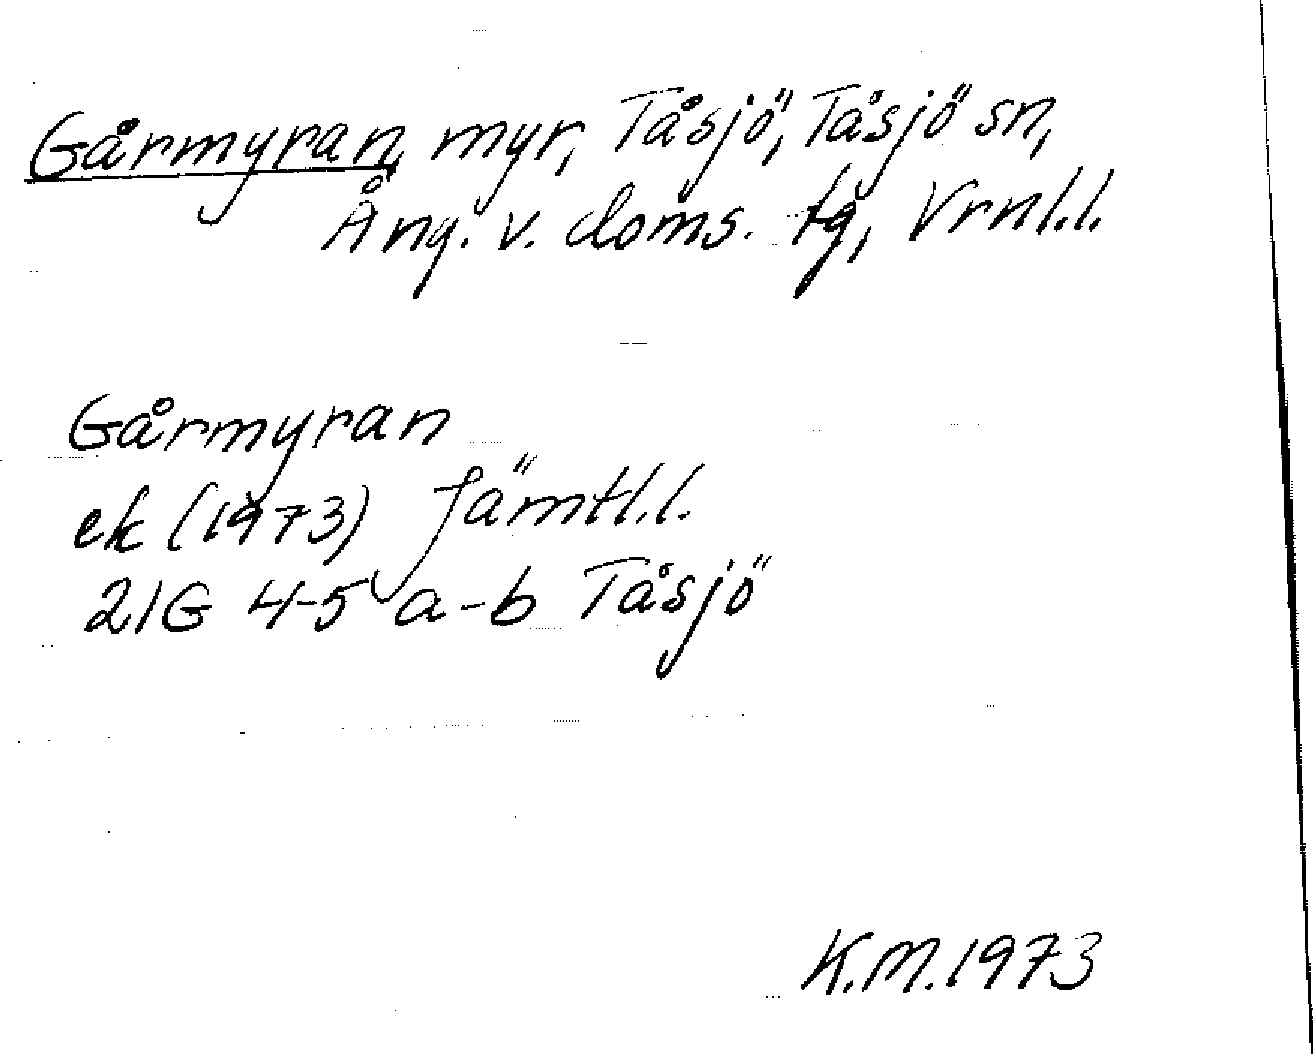 Gårmyran, myr, Tåsjö, Tåsjö sn,
Ång. v. doms. tg, Vrnl.l.
Gårmyran
ek (1973) Jämtl.l.
21G 4-5 a-b Tåsjö
K.M.1973